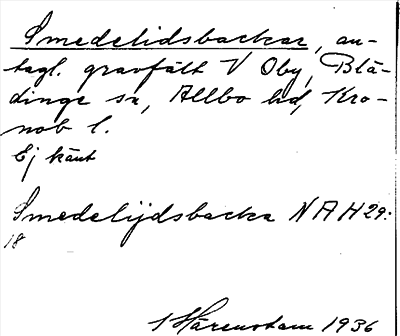 Smedelidsbackar, an-
tagl. gravfält V Oby, Blä-
dinge sn, Allbo hd, Kro-
nob l.
Ej känt
Smedelijdsbacka NAH 29:
18
Härenstam 1936